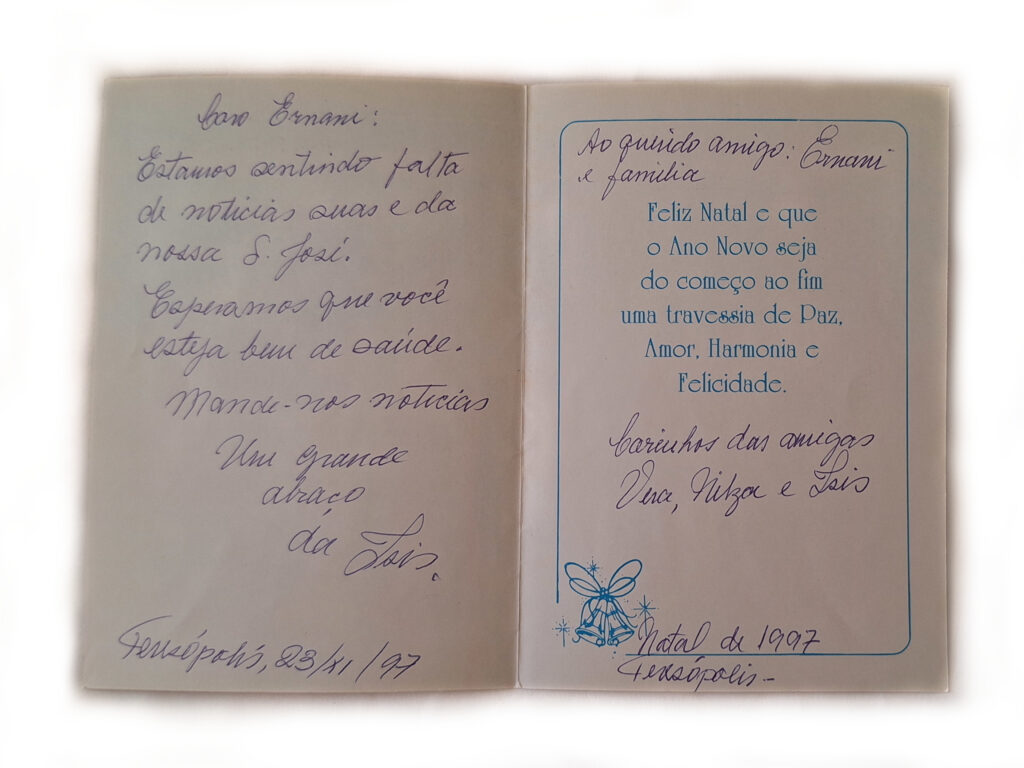 Caro Ernani:
Estamos sentindo falta
de noticias suas e da
nossa S. José.
Esperamos que você
esteja bem de saúde.
Mande-nos noticias
Um grande
abraço
da Isis.
Teresópolis, 23/XI/97
Ao querido amigo: Ernani
e familia
Feliz Natal e que
o Ano Novo seja
do começo ao fim
uma travessia de Paz,
Amor, Harmonia e
Felicidade.
Carinhos das amigas
Vera, Nilza e Isis
Natal de 1997
Teresópolis-